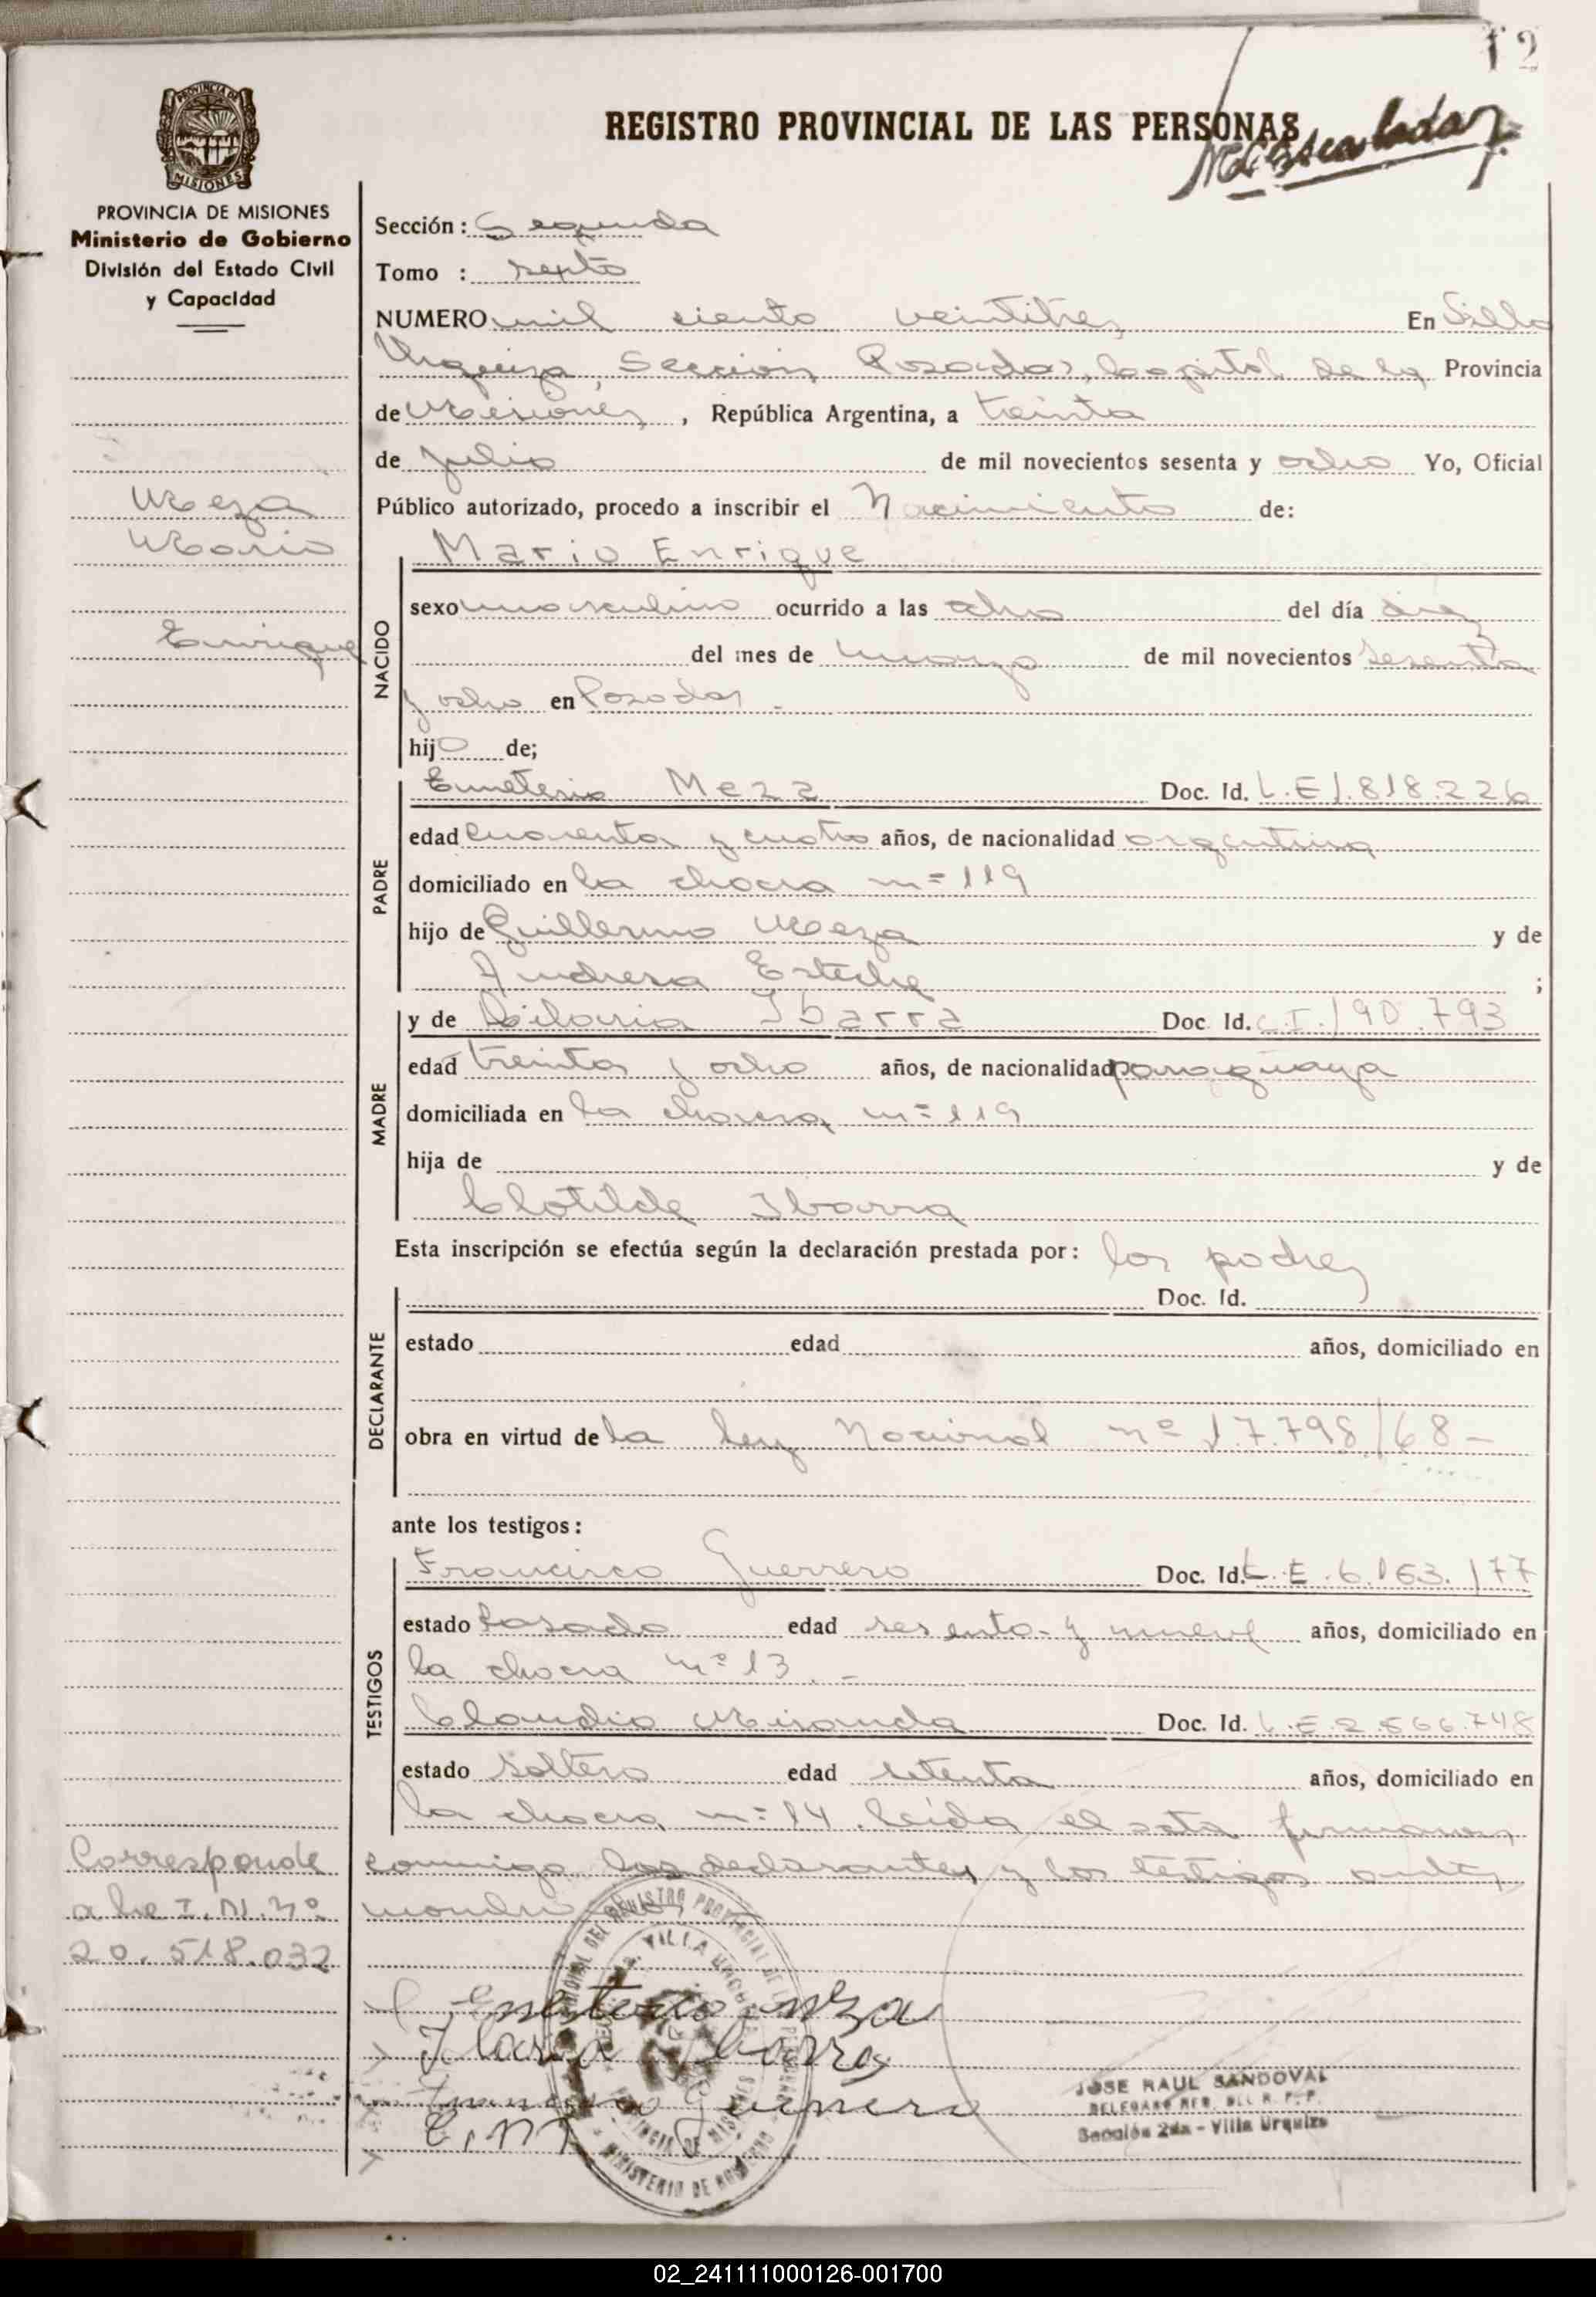 12
REGISTRO PROVINCIAL DE LAS PERSONAS
PROVINCIA DE MISIONES
MISIONES
PROVINCIA DE MISIONES
Ministerio de Gobierno
División del Estado Civil
y Capacidad
Sección: Segunda
Tomo :
NUMERO mil ciento veintitres En Villa
Urquiza, Sección Posadas, Capital de la Provincia
de Misiones, República Argentina, a treinta
de Julio de mil novecientos sesenta y ocho Yo, Oficial
Público autorizado, procedo a inscribir el Nacimiento de:
Meza
Mario
Enrique
NACIDO
Mario Enrique
sexo masculino ocurrido a las ocho del día diez
del mes de marzo de mil novecientos sesenta
y ocho en Posadas -
hijo de;
PADRE
Emeterio Meza Doc. Id. L.E 1.818.226
edad cuarenta y cuatro años, de nacionalidad argentina
domiciliado en la chacra nº 119
hijo de Guillermo Meza y de
Andresa Esteche ;
MADRE
y de Hilaria Ibarra Doc. Id. C.I. 190.793
edad treinta y ocho años, de nacionalidad paraguaya
domiciliada en la chacra nº 119
hija de y de
Clotilde Ibarra
Esta inscripción se efectúa según la declaración prestada por: los padres
DECLARANTE
Doc. Id.
estado edad años, domiciliado en
obra en virtud de la ley Nacional nº 17.798/68-
ante los testigos:
TESTIGOS
Francisco Guerrero Doc. Id. L.E. 6.163.177
estado Casado edad sesenta y nueve años, domiciliado en
la chacra nº 13. -
Claudio Miranda Doc. Id. L.E. 2.566.748
estado Soltero edad setenta años, domiciliado en
la chacra nº 14. Leída el acta firmaron
conmigo los declarantes y los testigos
Corresponde
a la I.N. Nº
20.518.032
Emeterio Meza
Ilaria Ibarra
Francisco Guerrero
C. M
VILLA URQUIZA
MINISTERIO DE GOBIERNO
JOSE RAUL SANDOVAL
DELEGADO REG. DEL R. P. P.
Sección 2da - Villa Urquiza
02_241111000126-001700